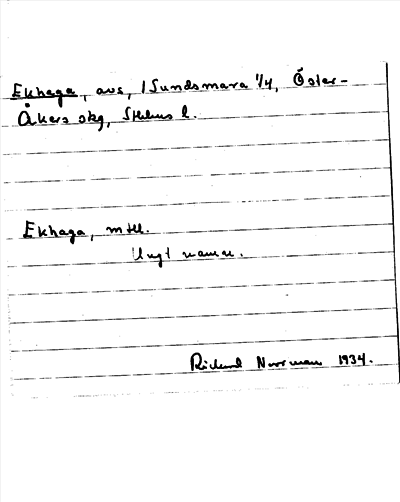 Ekhaga, avs, 1 Sundsmara 1/4, Öster-
Åkers skg, Sthlms l.
Ekhaga, mtl.
Ungt namn.
Richard Norrman 1934.